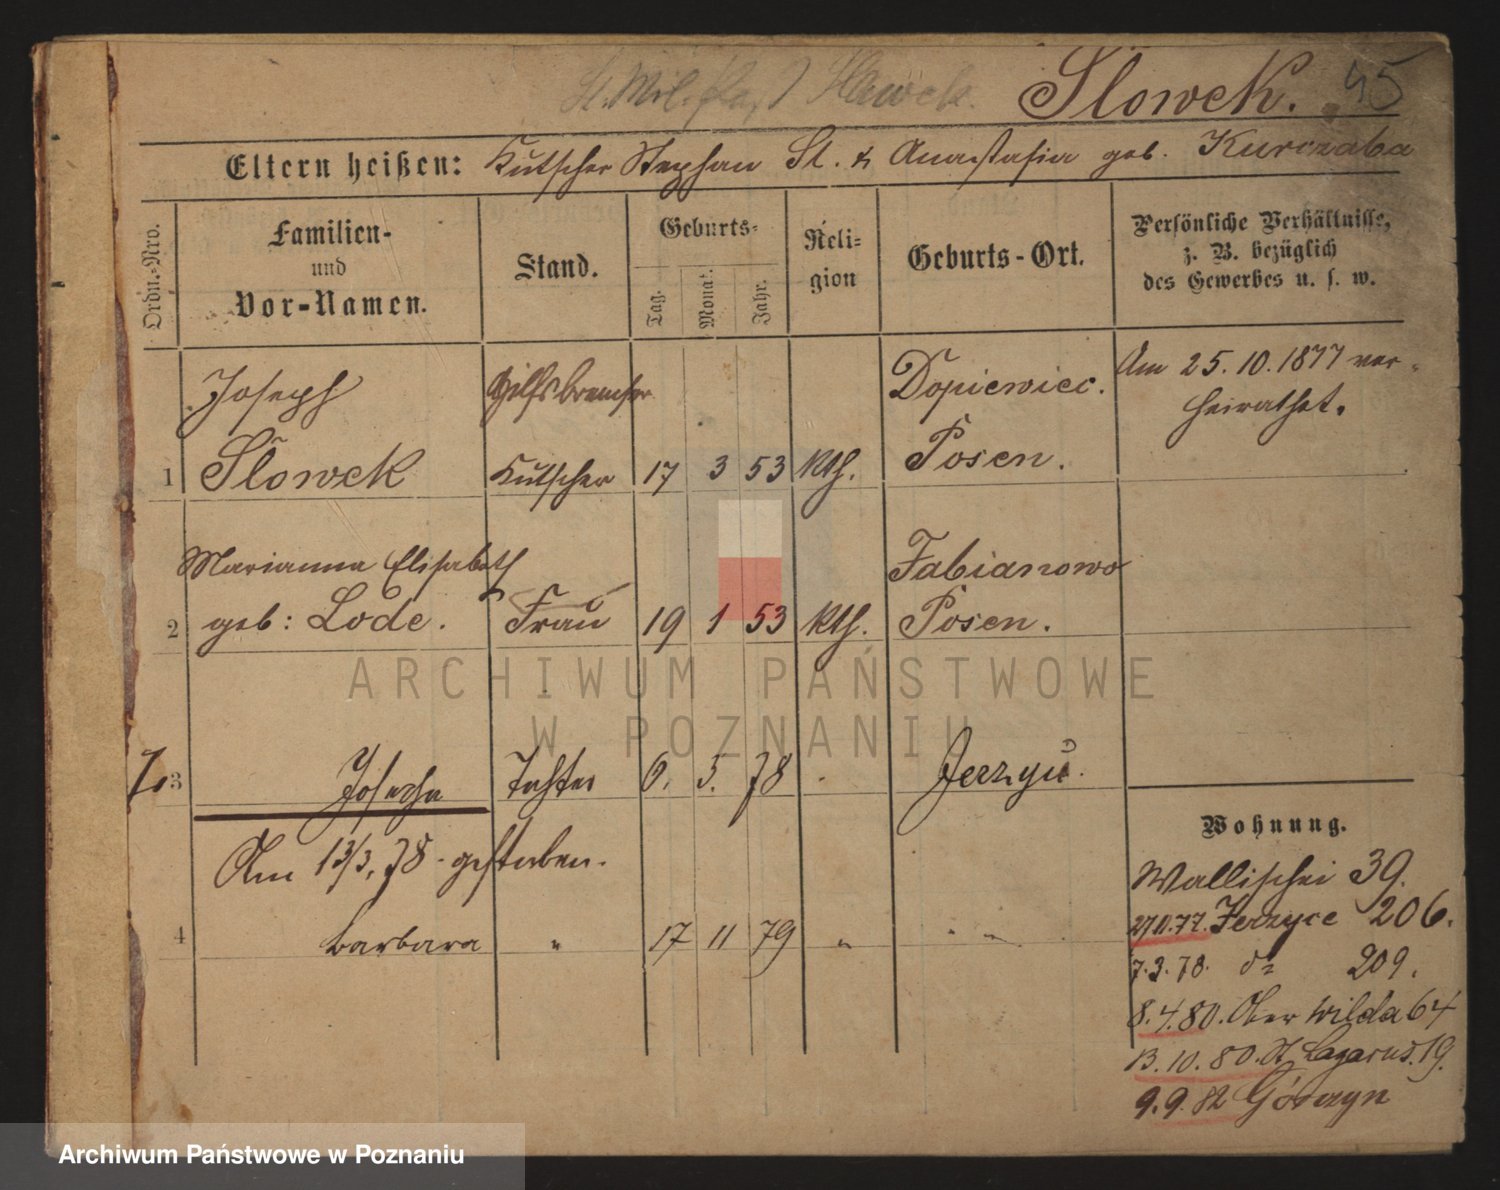 Słowek. 45
Eltern heißen: Kutscher Stephan Sł. & Anastasia geb. Kurczaba
Ordn.-Nro.
Familien-
und
Vor-Namen.
Stand.
Geburts-
Tag.
Monat.
Jahr.
Reli-
gion
Geburts-Ort.
Persönliche Verhältnisse,
z. B. bezüglich
des Gewerbes u. s. w.
Joseph Hilfsbremser Dopiewiec. Am 25.10.1877 ver-
heirathet.
1 Słowek Kutscher 17 3 53 kth. Posen.
Marianna Elisabeth Fabianowo
2 geb: Lode. Frau 19 1 53 kth. Posen.
3 Josepha Tochter 6. 5. 78 Jerzyu.
Am 13/3. 78 gestorben.
4 Barbara " 17 11 79 " " "
Wohnung.
Wallischei 39.
27.11.77. Jerzyce 206.
7.3.78. do 209.
8.4.80. Ober Wilda 64
13.10.80. St Lazarus. 19.
9.9.82 Górczyn
ARCHIWUM PAŃSTWOWE
W POZNANIU
Archiwum Państwowe w Poznaniu